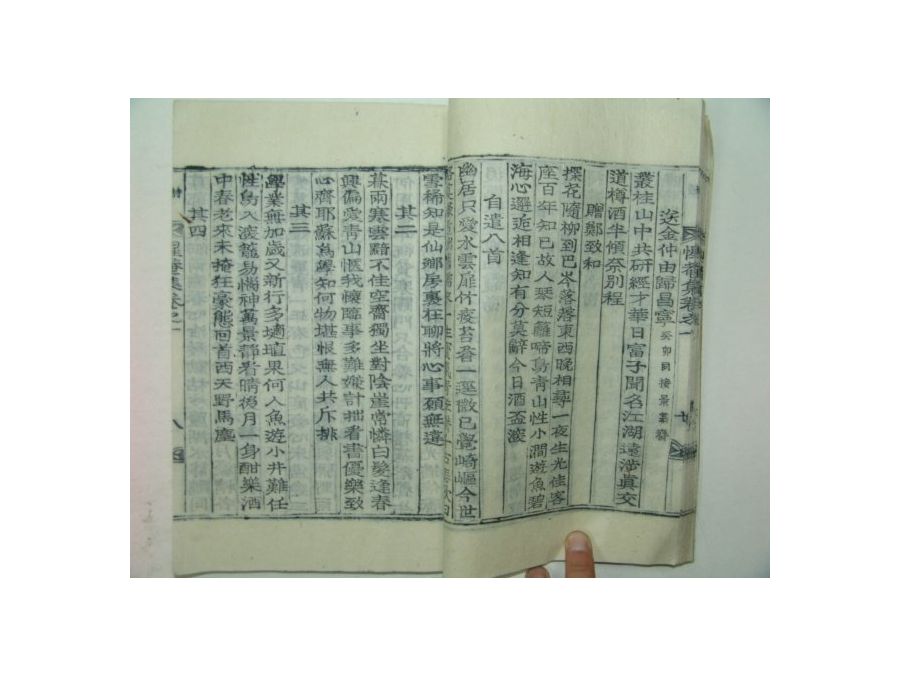 送金仲由歸昌寧 癸卯同接景
叢桂山中共研經才華日富子聞名江湖遠滯眞交
道樽酒半傾奈別程
贈鄭致和
探花隨柳到巴岑落落東西晚相尋一夜生光佳客
座百年知己故人琹短籬啼鳥靑山性小澗遊魚碧
海心邂逅相逢知有分莫辭今日酒盃深
自遣八首
幽居只愛水雲扉竹瘦苔香一逕微已覺崎嶇今世
雪稀知是仙鄕房裏狂聊將心事願無違
其二
暮雨寒雲黯不佳空齋獨坐對陰崖常憐白髮逢春
興偏愛靑山愜我懷臨事多難嫌計拙看書優樂致
心齊耶蘇爲學知何物堪恨無人共斥排
其三
學業無加歲又新行多摘埴果何人魚遊小井難任
性鳥入深籠易惱神萬景靜看晴後月一身酣樂酒
中春老來未掩狂豪態回首西天野馬塵
其四
集卷之一
八